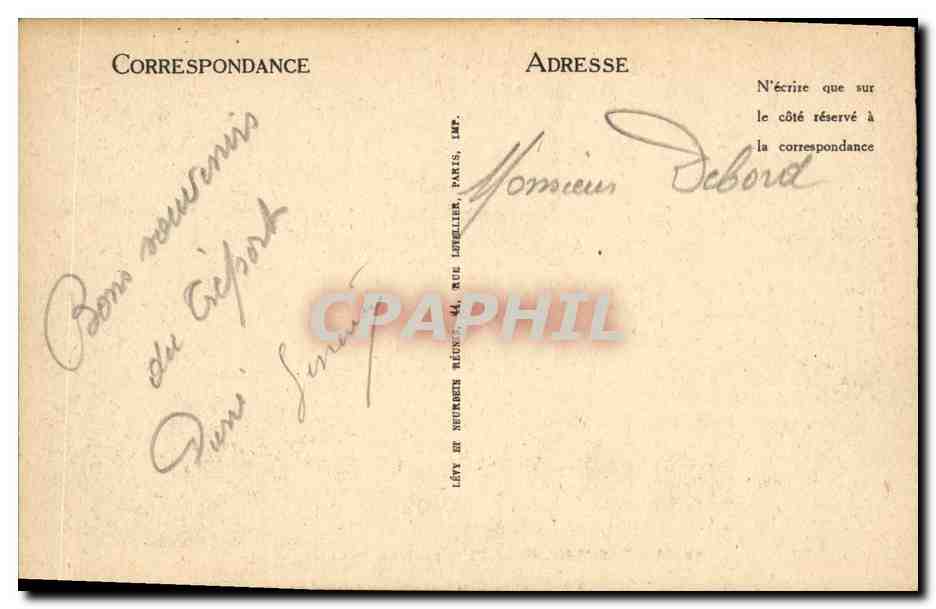 CORRESPONDANCE
Bons souvenirs
du Tréport
LÉVY ET NEURDEIN RÉUNIS, 44, RUE LETELLIER, PARIS, IMP.
ADRESSE
N'écrire que sur
le côté réservé à
la correspondance
Monsieur Debord
CPAPHIL